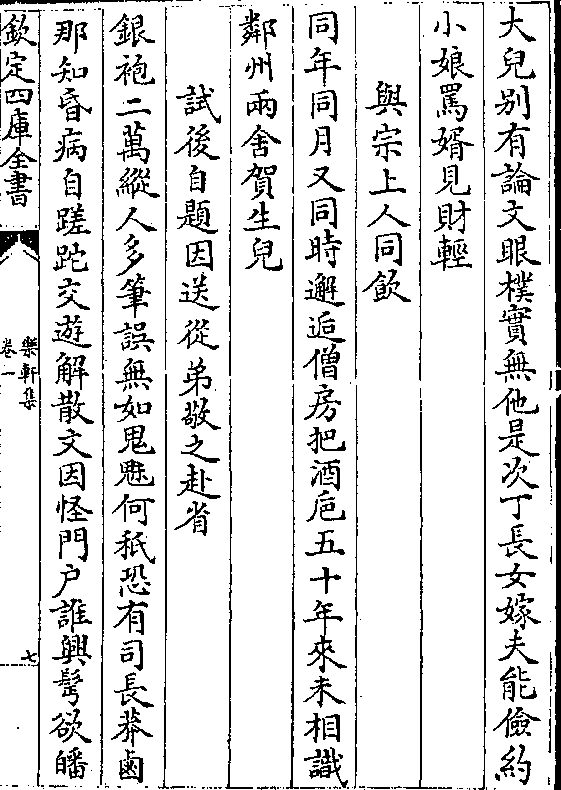 大兒别有論文眼樸實無他是次丁長女嫁夫能儉約
小娘罵婿見財輕
與宗上人同飲
同年同月又同時邂逅僧房把酒巵五十年來未相識
鄰州兩舍賀生兒
試後自題因送從弟敬之赴省
銀袍二萬縱人多筆誤無如鬼魅何秖恐有司長莽鹵
那知昏病自蹉跎交遊解散文因怪門户誰興髩欲皤
欽定四庫全書
樂軒集
卷一
七